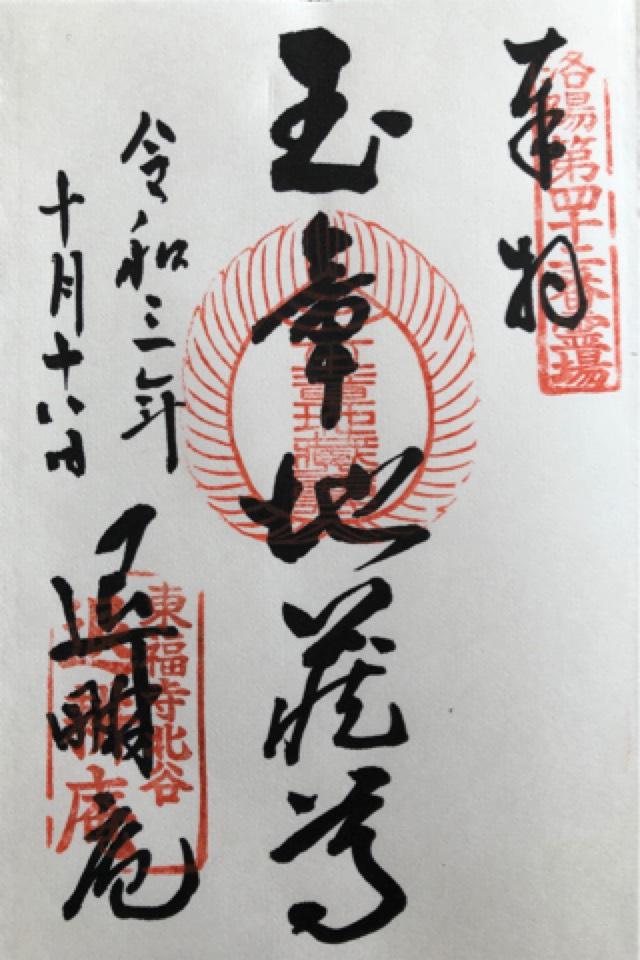 奉拝
洛陽第四十二番靈場
玉章地蔵尊
令和三年
十月十八日
東福寺北谷
退畊庵